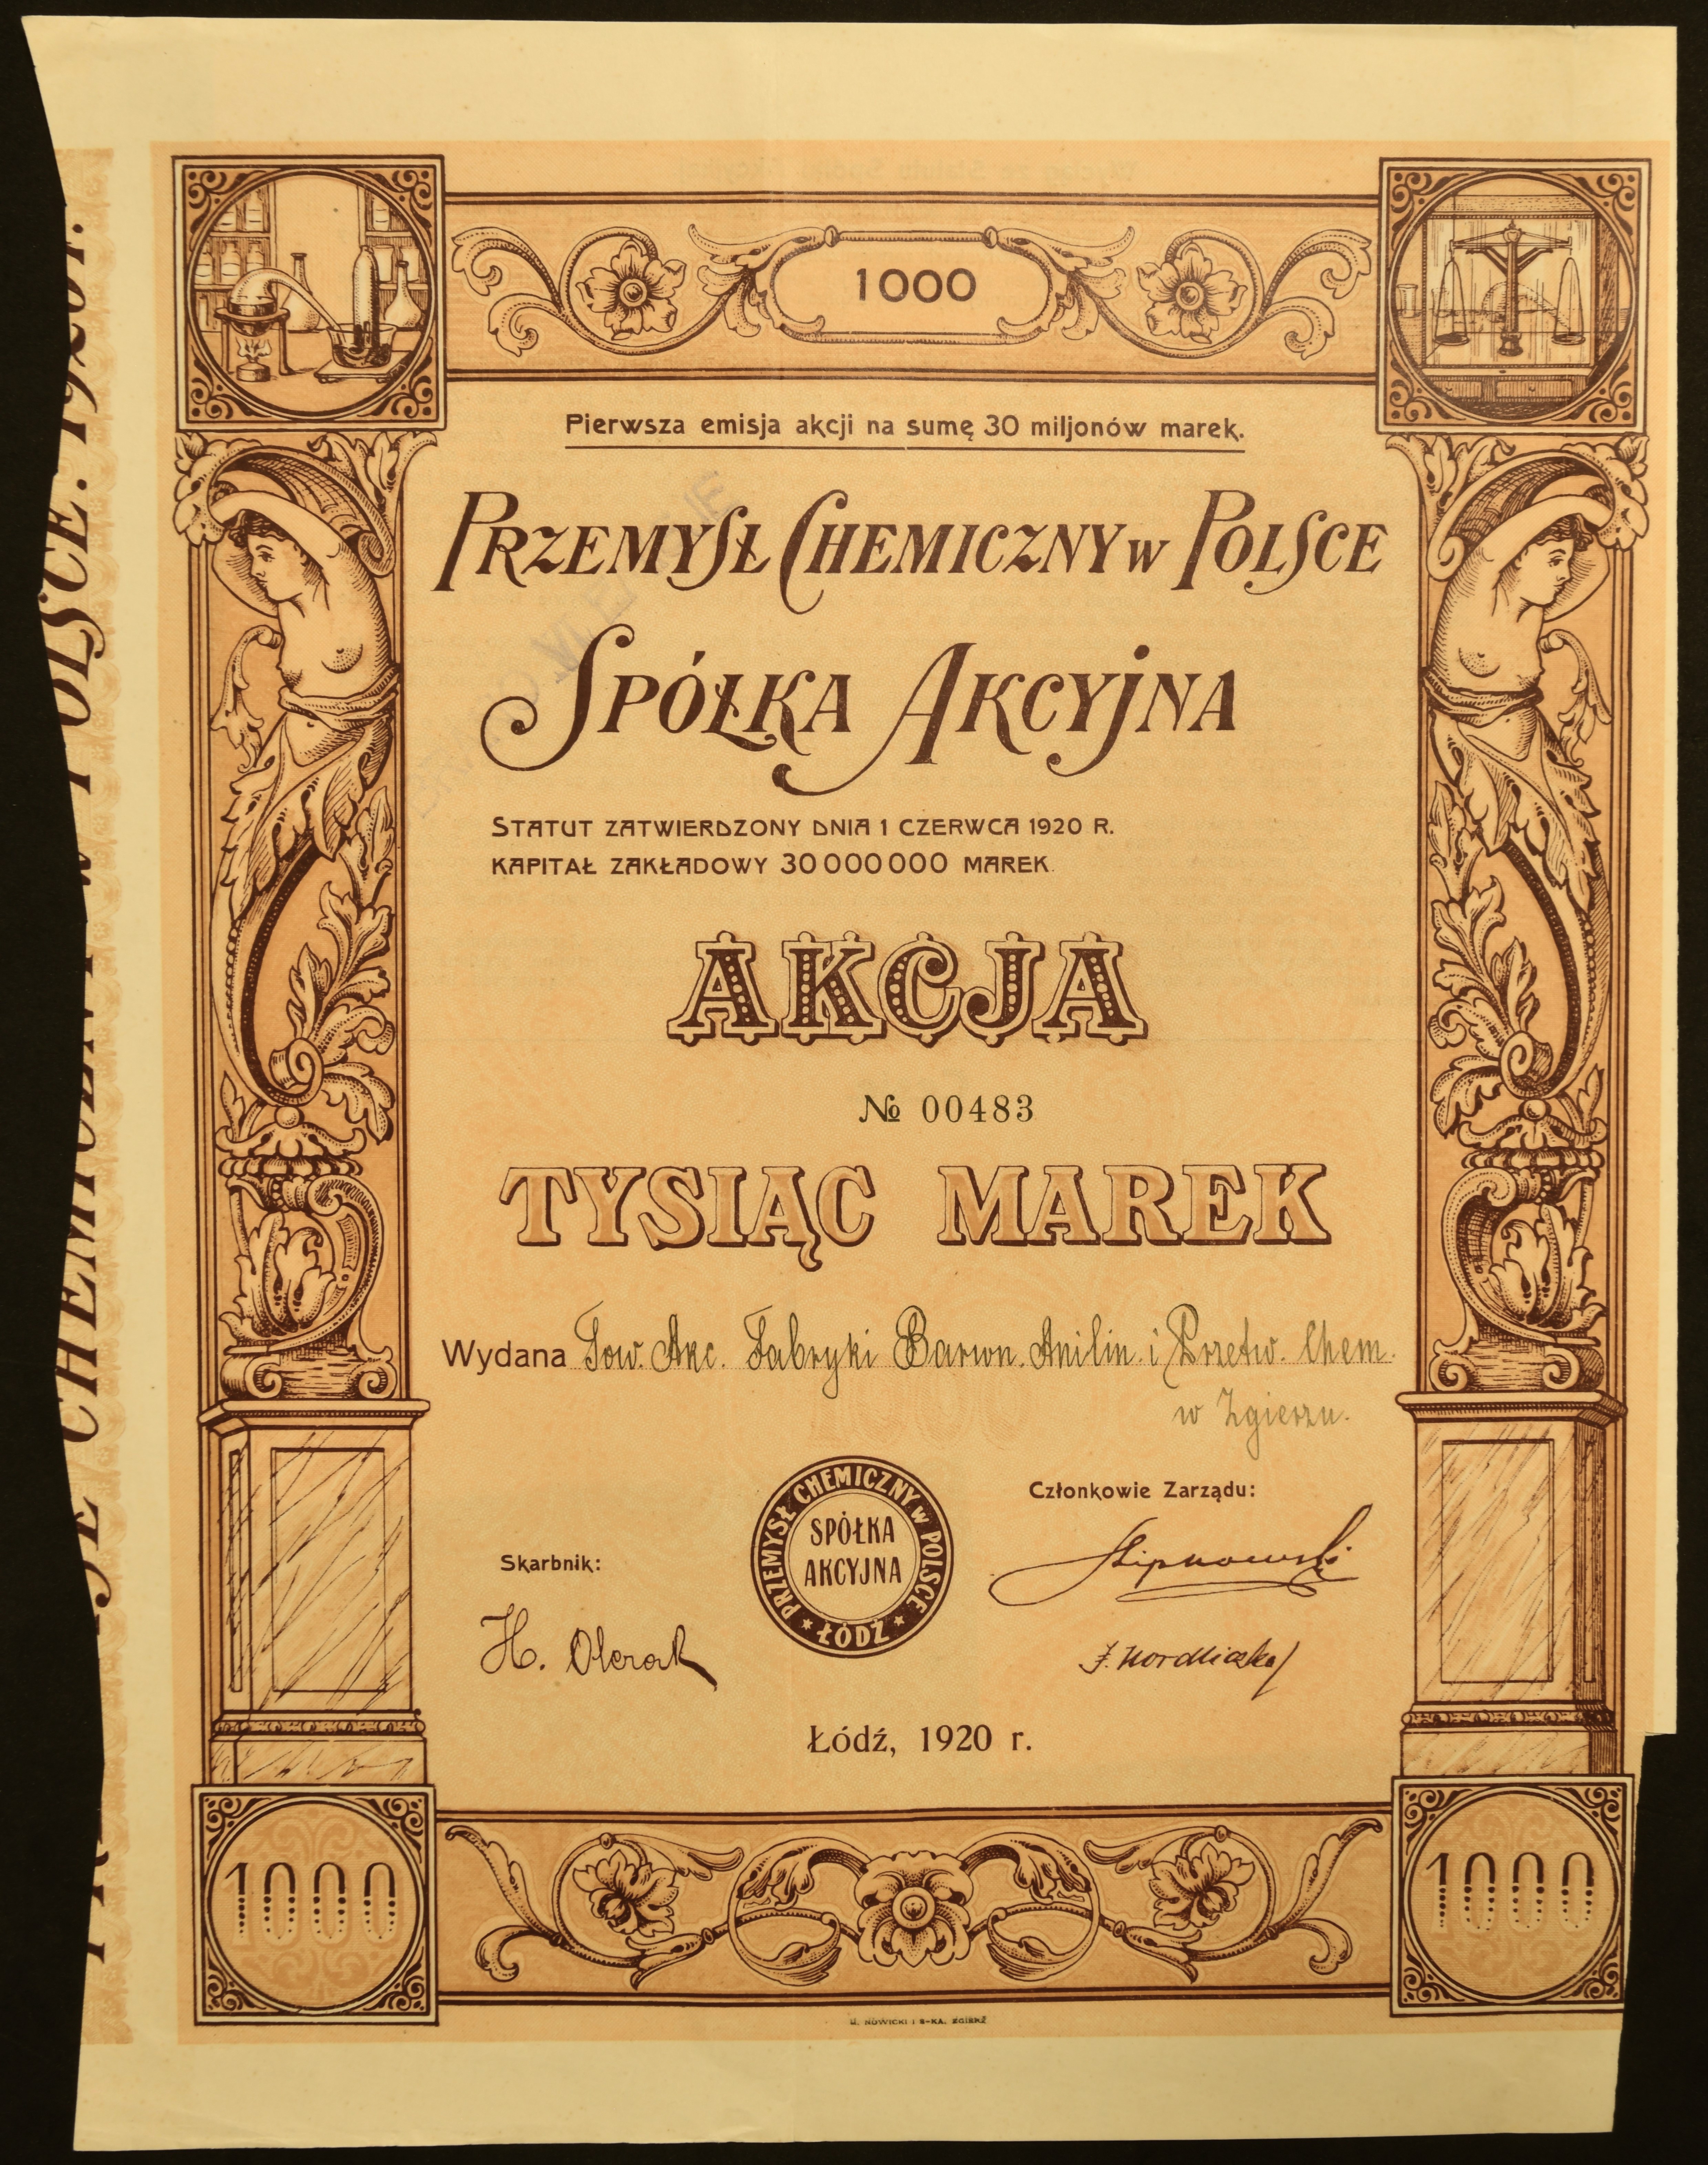 1000
Pierwsza emisja akcji na sumę 30 miljonów marek.
PRZEMYSŁ CHEMICZNY w POLSCE
SPÓŁKA AKCYJNA
STATUT ZATWIERDZONY DNIA 1 CZERWCA 1920 R.
KAPITAŁ ZAKŁADOWY 30000000 MAREK.
AKCJA
№ 00483
TYSIĄC MAREK
Wydana Tow. Akc. Fabryki Barwn. Anilin. i Przetw. Chem.
w Zgierzu.
1000
PRZEMYSŁ CHEMICZNY w POLSCE
SPÓŁKA
AKCYJNA
* ŁÓDŹ *
Członkowie Zarządu:
Skarbnik:
H.
Łódź, 1920 r.
1000
1000
NOWICKI i S-KA, ZGIERZ
CHEMICZNY w POLSCE. 1920 r.